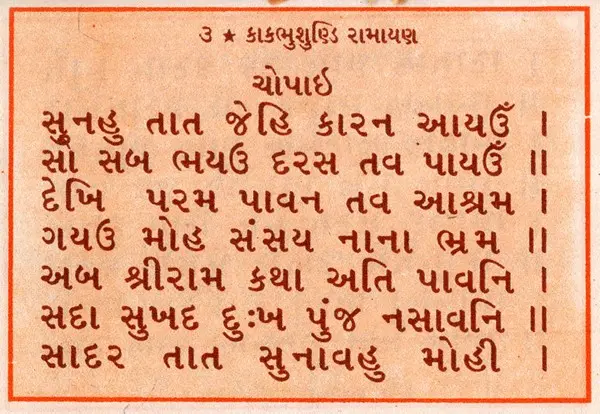 ૩ ★ કાકભુશુણ્ડિ રામાયણ
ચોપાઈ
સુનહુ તાત જેહિ કારન આયઉઁ ।
સો સબ ભયઉ દરસ તવ પાયઉઁ ॥
દેખિ પરમ પાવન તવ આશ્રમ ।
ગયઉ મોહ સંસય નાના ભ્રમ ॥
અબ શ્રીરામ કથા અતિ પાવનિ ।
સદા સુખદ દુઃખ પુંજ નસાવનિ ॥
સાદર તાત સુનાવહુ મોહી ।